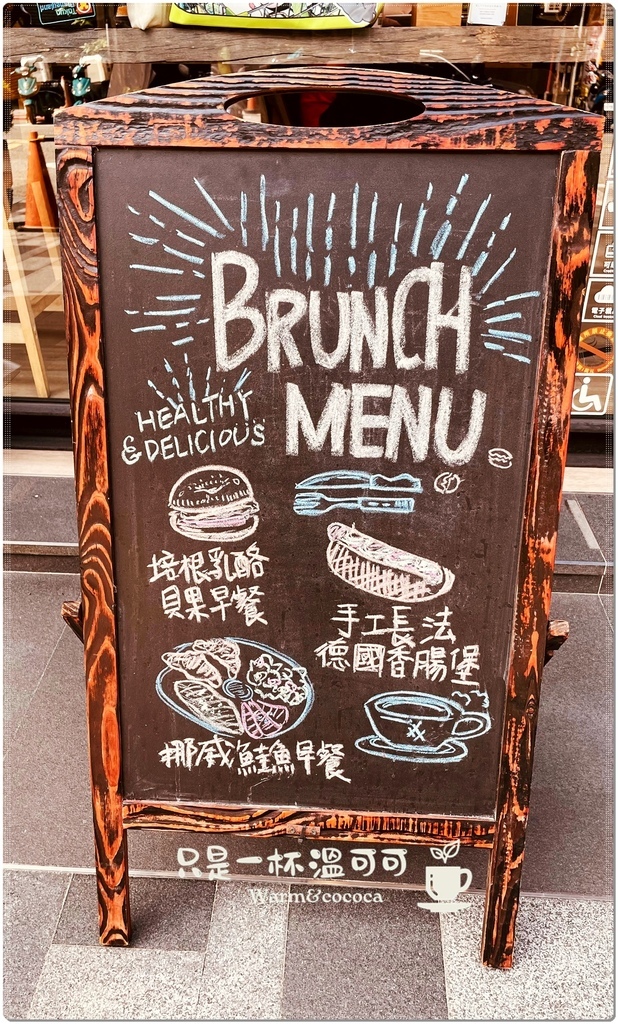 BRUNCH
MENU
HEALTHY
& DELICIOUS
培根乳酪
貝果早餐
手工長法
德國香腸堡
挪威鮭魚早餐
只是一杯溫可可
Warm&cococa